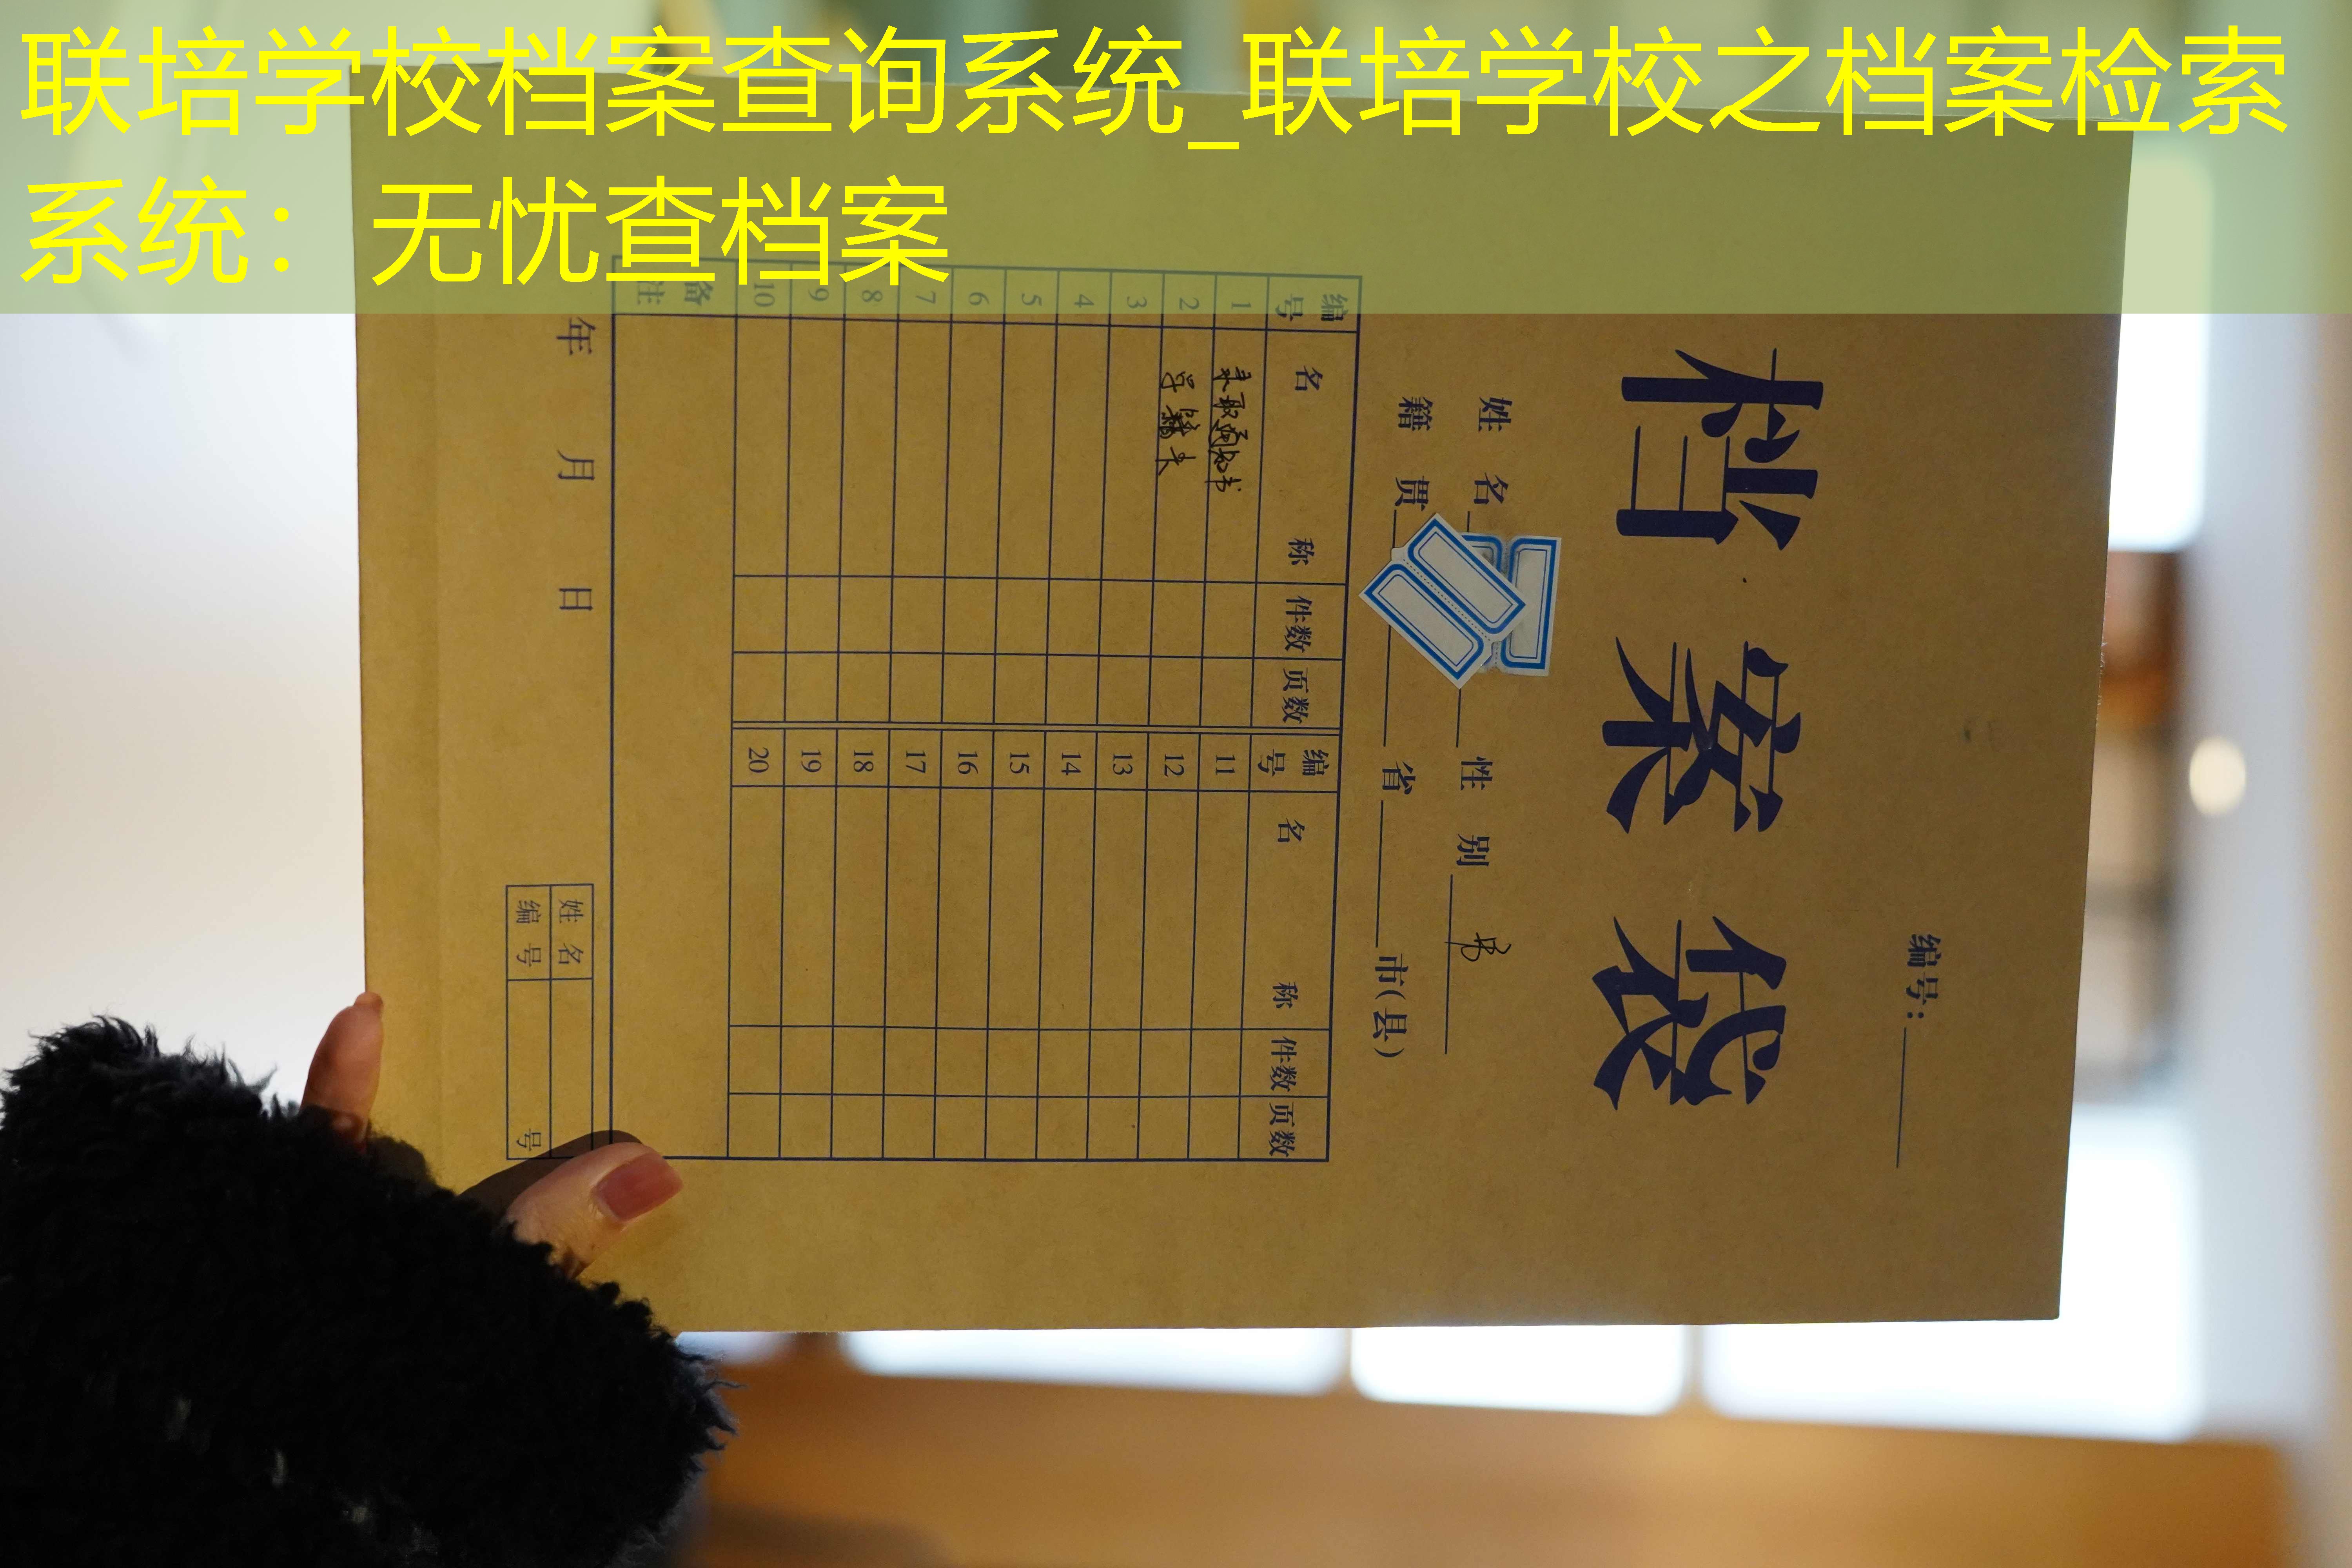 联培学校档案查询系统_联培学校之档案检索
系统：无忧查档案
编号：
档案袋
姓名 性别 男
籍贯 省 市(县)
编号 名称 件数 页数 编号 名称 件数 页数
1 录取通知书 11
2 学籍卡 12
3 13
4 14
5 15
6 16
7 17
8 18
9 19
10 20
备注
年 月 日
姓名
编号 号